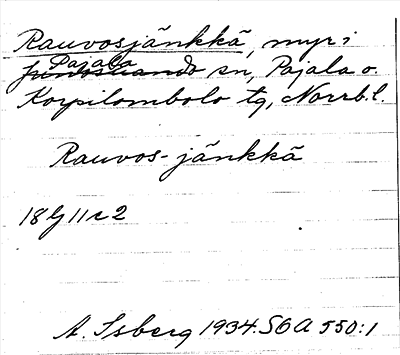 Rauvosjänkkä, myr i
Pajala
Junosuando sn, Pajala o.
Korpilombolo tg, Norrb. l.
Rauvos-jänkkä
18 G 11 c 2
A. Isberg 1934. S6A 550:1